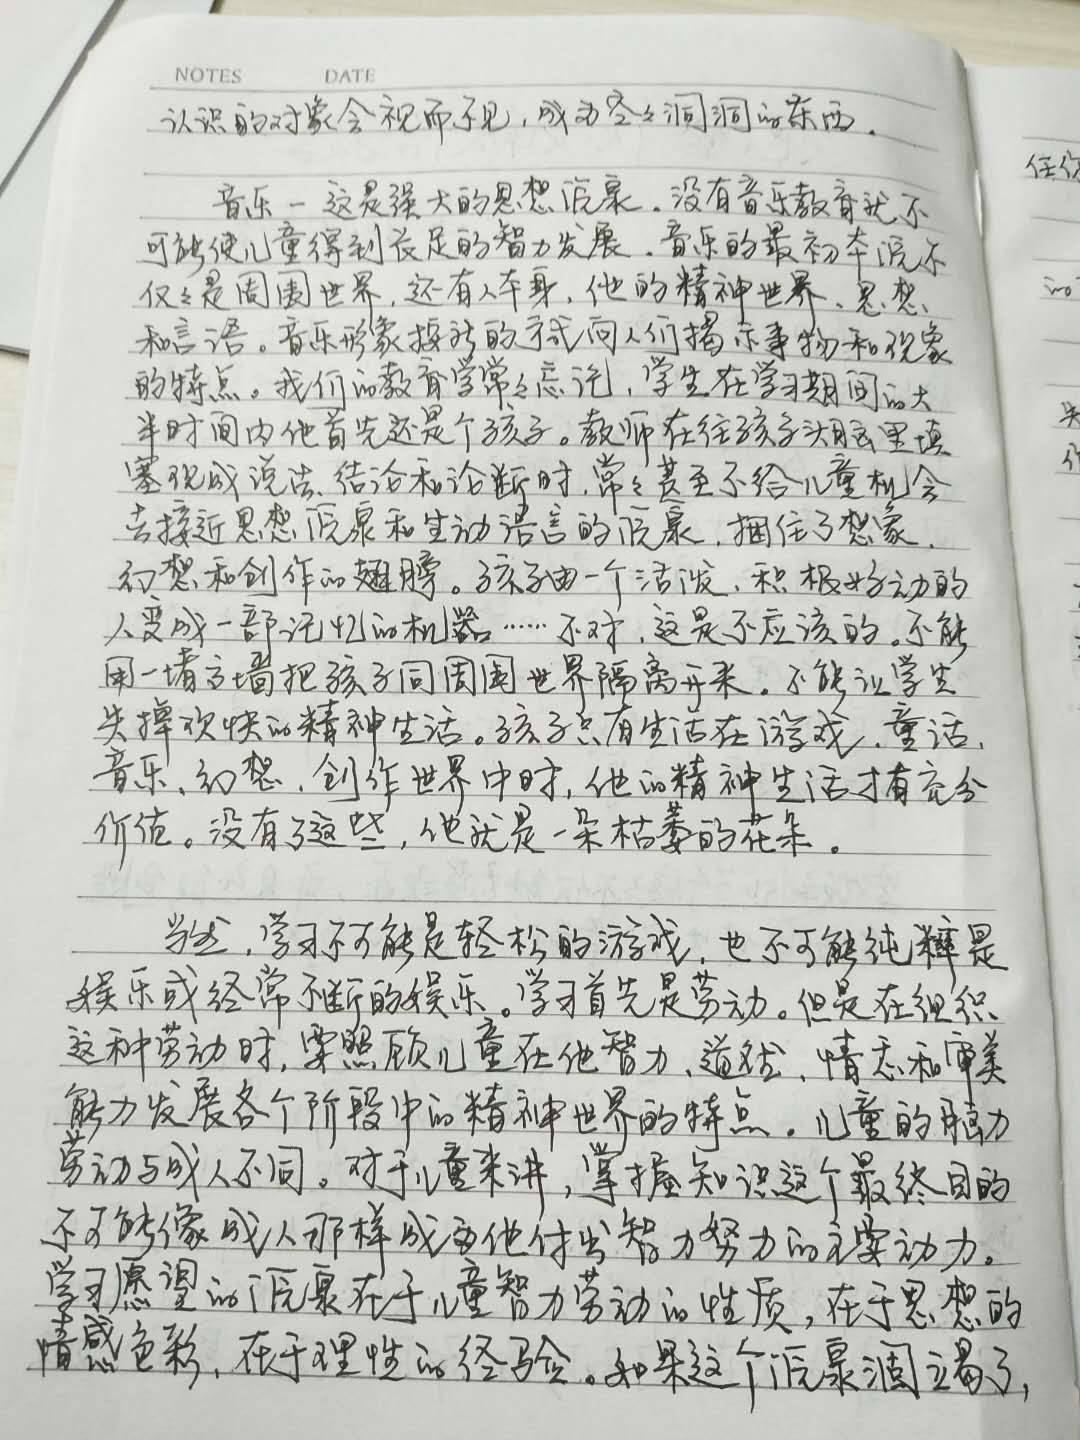 NOTES DATE
认识的对象会视而不见，成为空々洞洞的东西。
音乐－这是强大的思想源泉。没有音乐教育就不
可能使儿童得到长足的智力发展。音乐的最初本源不
仅々是周围世界，还有人本身，他的精神世界、思想
和言语。音乐形象按新的方式向人们揭示事物和现象
的特点。我们的教育学常々忘记，学生在学习期间的大
半时间内他首先还是个孩子。教师在往孩子头脑里填
塞现成说法、结论和论断时，常々甚至不给儿童机会
去接近思想源泉和生动语言的源泉，捆住了想象、
幻想和创作的翅膀。孩子由一个活泼、积极好动的
人变成一部记忆的机器……不对，这是不应该的。不能
用一堵高墙把孩子同周围世界隔离开来。不能让学生
失掉欢快的精神生活。孩子只有生活在游戏、童话、
音乐、幻想、创作世界中时，他的精神生活才有充分
价值。没有了这些，他就是一朵枯萎的花朵。
当然，学习不可能是轻松的游戏，也不可能纯粹是
娱乐或经常不断的娱乐。学习首先是劳动。但是在组织
这种劳动时，要照顾儿童在他智力、道德、情志和审美
能力发展各个阶段中的精神世界的特点。儿童的脑力
劳动与成人不同。对于儿童来讲，掌握知识这个最终目的
不可能像成人那样成为他付出智力努力的主要动力。
学习愿望的源泉在于儿童智力劳动的性质，在于思想的
情感色彩，在于理性的经验。如果这个源泉涸竭了，
任你
的